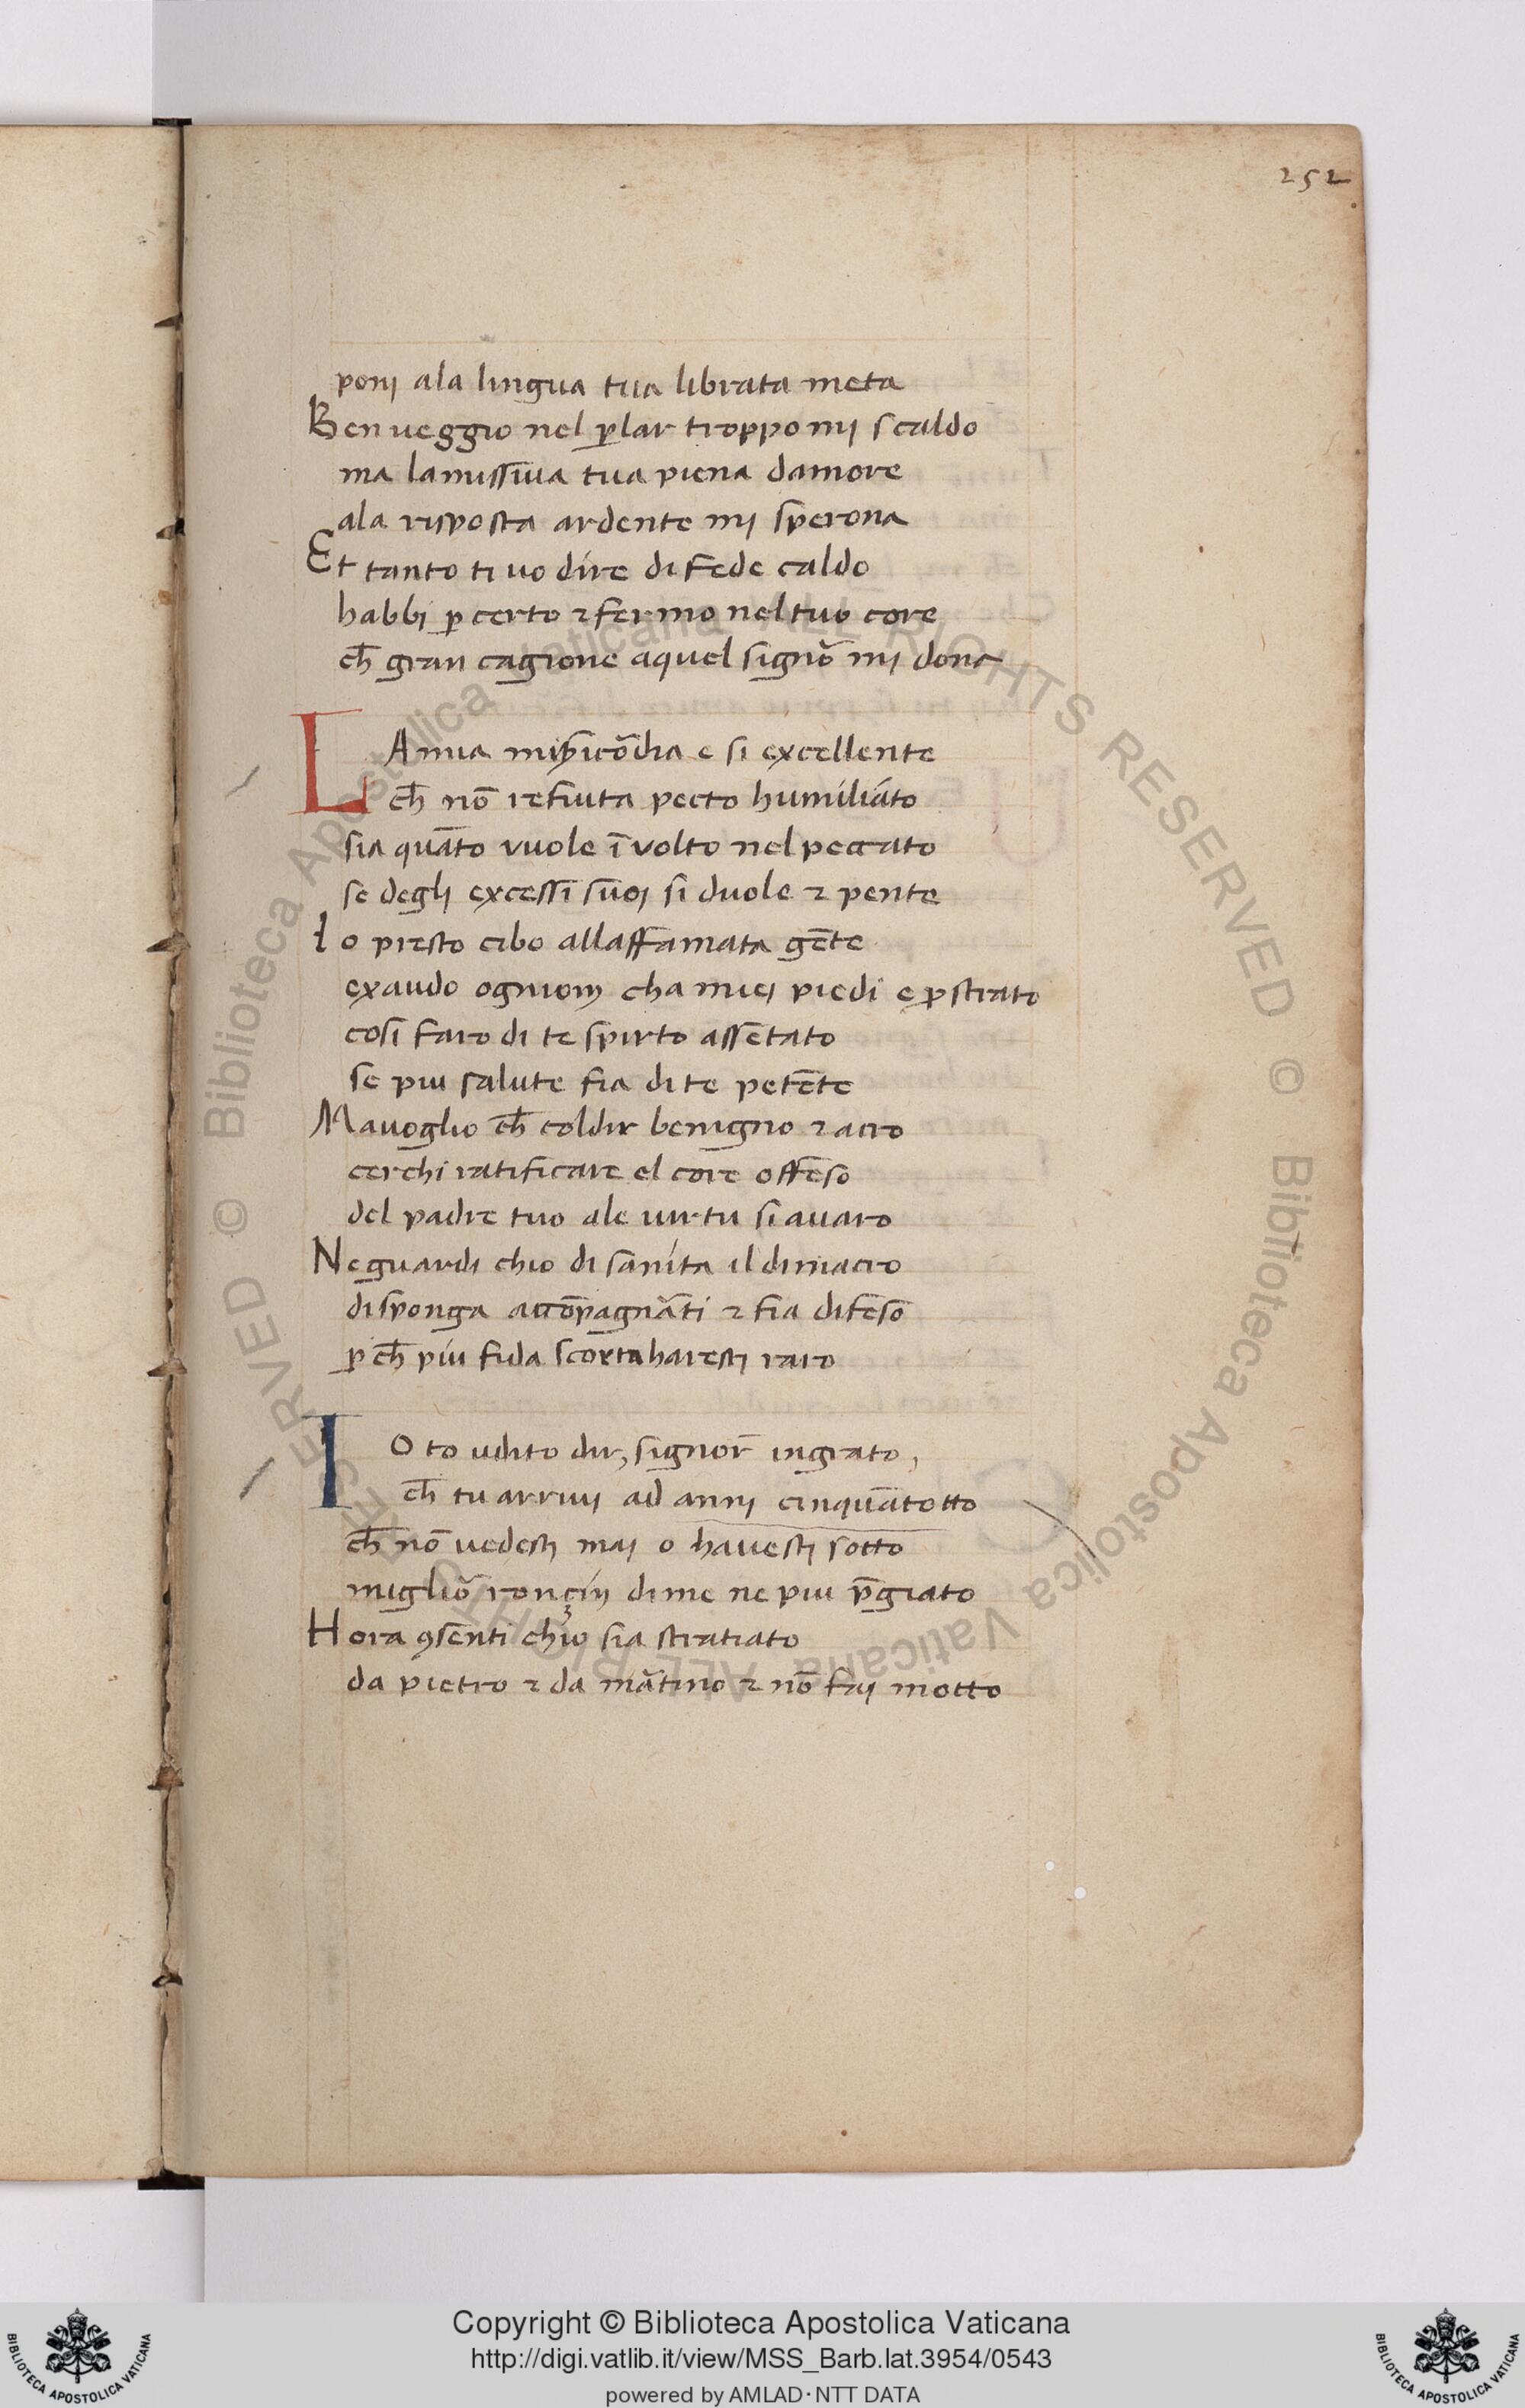 252
ponj ala lingua tua librata meta
Ben ueggio nel ꝑlar troppo mj scaldo
ma lamissiua tua piena damore
ala risposta ardente mj sperona
Et tanto ti uo dire di fede caldo
habbj ꝑ certo ⁊ fermo nel tuo core
ch̄ gran cagione aquel signō mj dona
LA mia miẜicōdia e si excellente
ch̄ nō refiuta pecto humiliato
sia quāto vuole ī volto nel peccato
se deglj excessi suoj si duole ⁊ pente
Io presto cibo allaffamata gēte
exaudo ogniomȷ cha miej piedi e ꝓstrato
cosi faro di te spirto assetato
se piu salute fia di te petēte
Ma uoglio ch̄ col dir benigno ⁊ acro
cerchi ratificare el core offeso
del padre tuo ale uirtu si auaro
Ne guardi chio di sanita il dimacro
disponga accōpagnāti ⁊ fia difeso
ꝑ ch̄ piu fida scorta harestj raro
IO to udito dir, signor ingrato,
ch̄ tu arriuj ad annj cinquātotto
ch̄ nō uedestj maj o hauestj sotto
migliō ronçinj di me ne piu p̄giato
Hora ꝯsenti chio sia stratiato
da pietro ⁊ da mātino ⁊ nō faj motto
Copyright © Biblioteca Apostolica Vaticana
http://digi.vatlib.it/view/MSS_Barb.lat.3954/0543
powered by AMLAD·NTT DATA
BIBLIOTECA APOSTOLICA VATICANA
BIBLIOTECA APOSTOLICA VATICANA